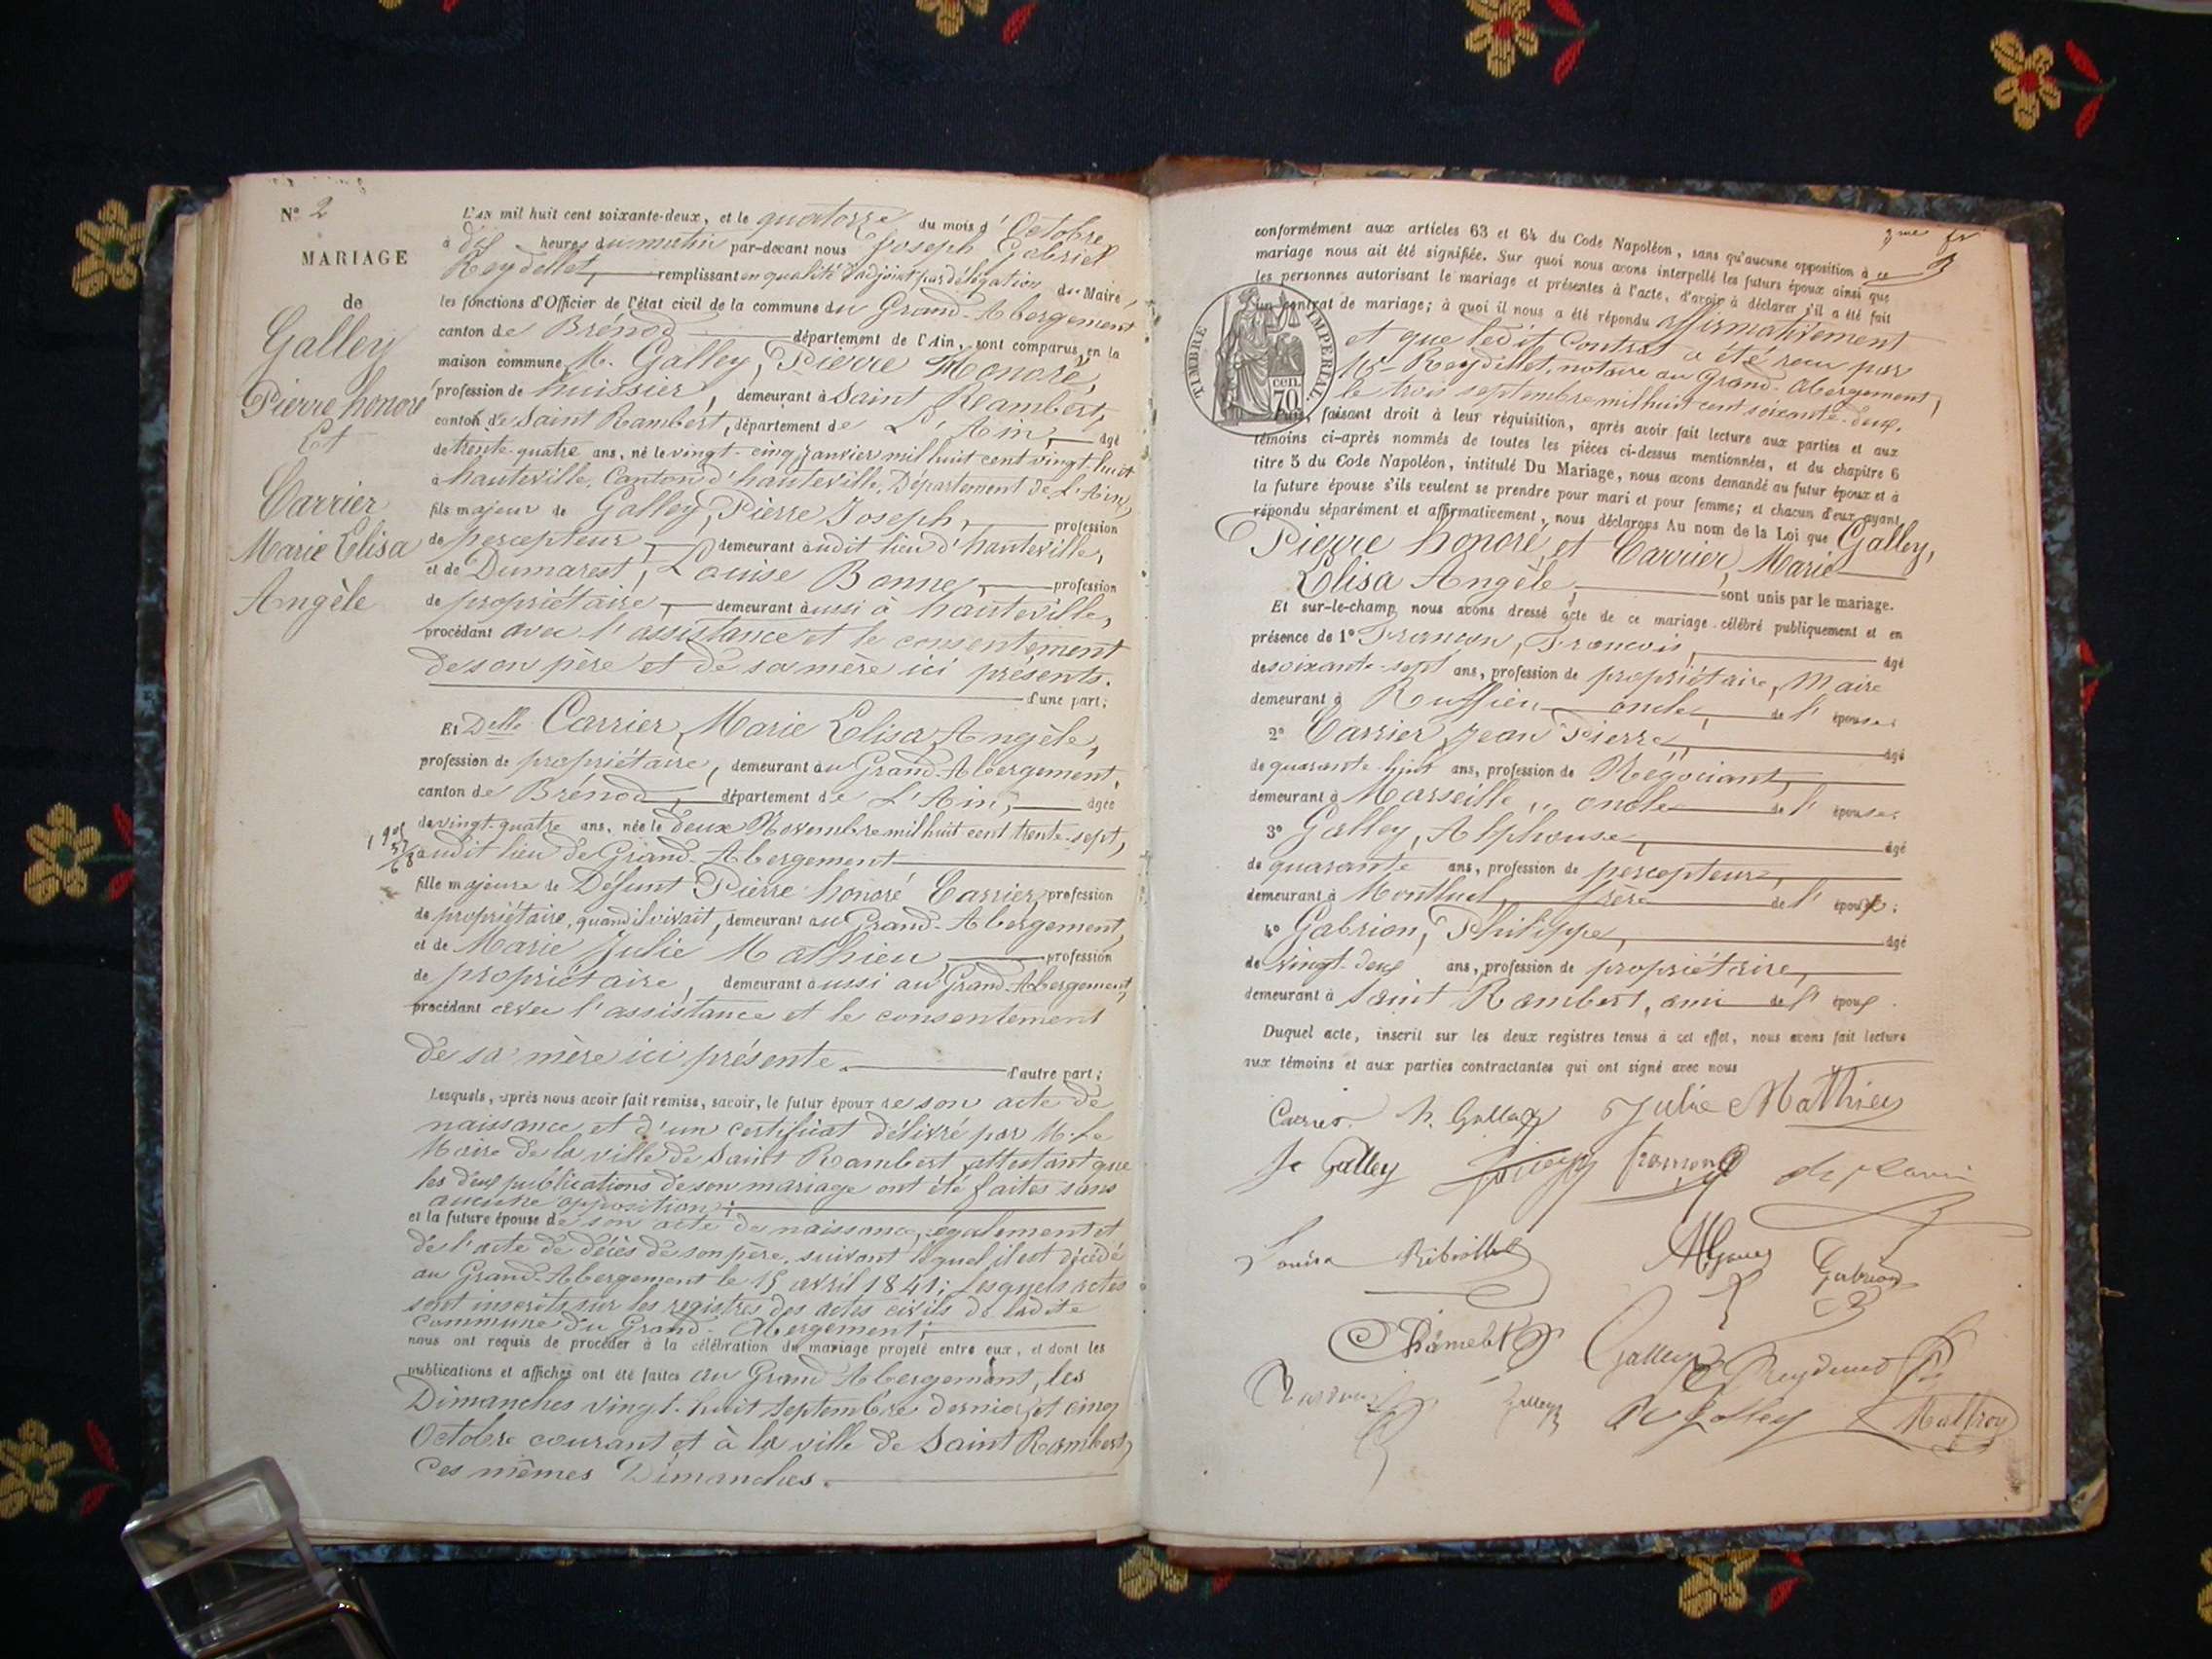 N° 2
MARIAGE
de
Galley
Pierre honoré
Et
Carrier
Marie Elisa
Angèle
L'AN mil huit cent soixante-deux, et le quatorze du mois d'Octobre
à dix heures du matin par-devant nous Joseph Gabriel
Reydellet, remplissant en qualité d'adjoint par délégation du Maire,
les fonctions d'Officier de l'état civil de la commune du Grand-Abergement
canton de Brénod département de l'Ain, sont comparus en la
maison commune M. Galley, Pierre Honoré,
profession de huissier, demeurant à Saint Rambert,
canton de Saint Rambert, département de L'Ain, âgé
de trente-quatre ans, né le vingt-cinq janvier mil huit cent vingt-huit
à hauteville, Canton d'hauteville, Département de L'Ain,
fils majeur de Galley, Pierre Joseph, profession
de percepteur, demeurant audit lieu d'hauteville,
et de Dumarest, Louise Bonne, profession
de propriétaire, demeurant aussi à hauteville,
procédant avec l'assistance et le consentement
de son père et de sa mère ici présents.
d'une part;
Et Delle Carrier, Marie Elisa Angèle,
profession de propriétaire, demeurant au Grand-Abergement,
canton de Brénod, département de L'Ain, âgée
de vingt-quatre ans, née le deux Novembre mil huit cent trente-sept,
audit lieu de Grand-Abergement
fille majeure de Défunt Pierre honoré Carrier, profession
de propriétaire, quand il vivait, demeurant au Grand-Abergement,
et de Marie Julie Mathieu, profession
de propriétaire, demeurant aussi au Grand-Abergement,
procédant avec l'assistance et le consentement
de sa mère ici présente.
d'autre part;
Lesquels, après nous avoir fait remise, savoir, le futur époux de son acte de
naissance et d'un certificat délivré par M. le
Maire de la ville de Saint Rambert, attestant que
les deux publications de son mariage ont été faites sans
aucune opposition;
et la future épouse de son acte de naissance, également et
de l'acte de décès de son père, suivant lequel il est décédé
au Grand-Abergement le 15 avril 1841; Lesquels actes
sont inscrits sur les registres des actes civils de ladite
commune du Grand-Abergement;
nous ont requis de procéder à la célébration du mariage projeté entre eux, et dont les
publications et affiches ont été faites au Grand Abergement, les
Dimanches vingt-huit Septembre dernier et cinq
Octobre courant et à la ville de Saint Rambert,
ces mêmes Dimanches.
conformément aux articles 63 et 64 du Code Napoléon, sans qu'aucune opposition à ce
mariage nous ait été signifiée. Sur quoi nous avons interpellé les futurs époux ainsi que
les personnes autorisant le mariage et présentes à l'acte, d'avoir à déclarer s'il a été fait
un contrat de mariage; à quoi il nous a été répondu affirmativement
et que ledit Contrat a été reçu par
Me Reydellet, notaire au Grand-Abergement,
le trois septembre mil huit cent soixante-deux.
TIMBRE IMPERIAL
70 cen.
Puis, faisant droit à leur réquisition, après avoir fait lecture aux parties et aux
témoins ci-après nommés de toutes les pièces ci-dessus mentionnées, et du chapitre 6
titre 5 du Code Napoléon, intitulé Du Mariage, nous avons demandé au futur époux et à
la future épouse s'ils veulent se prendre pour mari et pour femme; et chacun d'eux ayant
répondu séparément et affirmativement, nous déclarons Au nom de la Loi que Galley,
Pierre honoré et Carrier, Marie
Elisa Angèle, sont unis par le mariage.
Et sur-le-champ nous avons dressé acte de ce mariage célébré publiquement et en
présence de 1° Francon, Francois, âgé
de soixante-sept ans, profession de propriétaire, Maire
demeurant à Ruffieu oncle, de l'épouse;
2° Carrier, Jean Pierre, âgé
de quarante-huit ans, profession de Négociant,
demeurant à Marseille, oncle de l'épouse;
3° Galley, Alphonse, âgé
de quarante ans, profession de percepteur,
demeurant à Montluel, frère de l'époux;
4° Gabrion, Philippe, âgé
de vingt-deux ans, profession de propriétaire,
demeurant à Saint Rambert, ami de l'époux.
Duquel acte, inscrit sur les deux registres tenus à cet effet, nous avons fait lecture
aux témoins et aux parties contractantes qui ont signé avec nous
Carrier h. Galley Julie Mathieu
Galley
Louisa
Gabrion
Galley
Galley
Galley